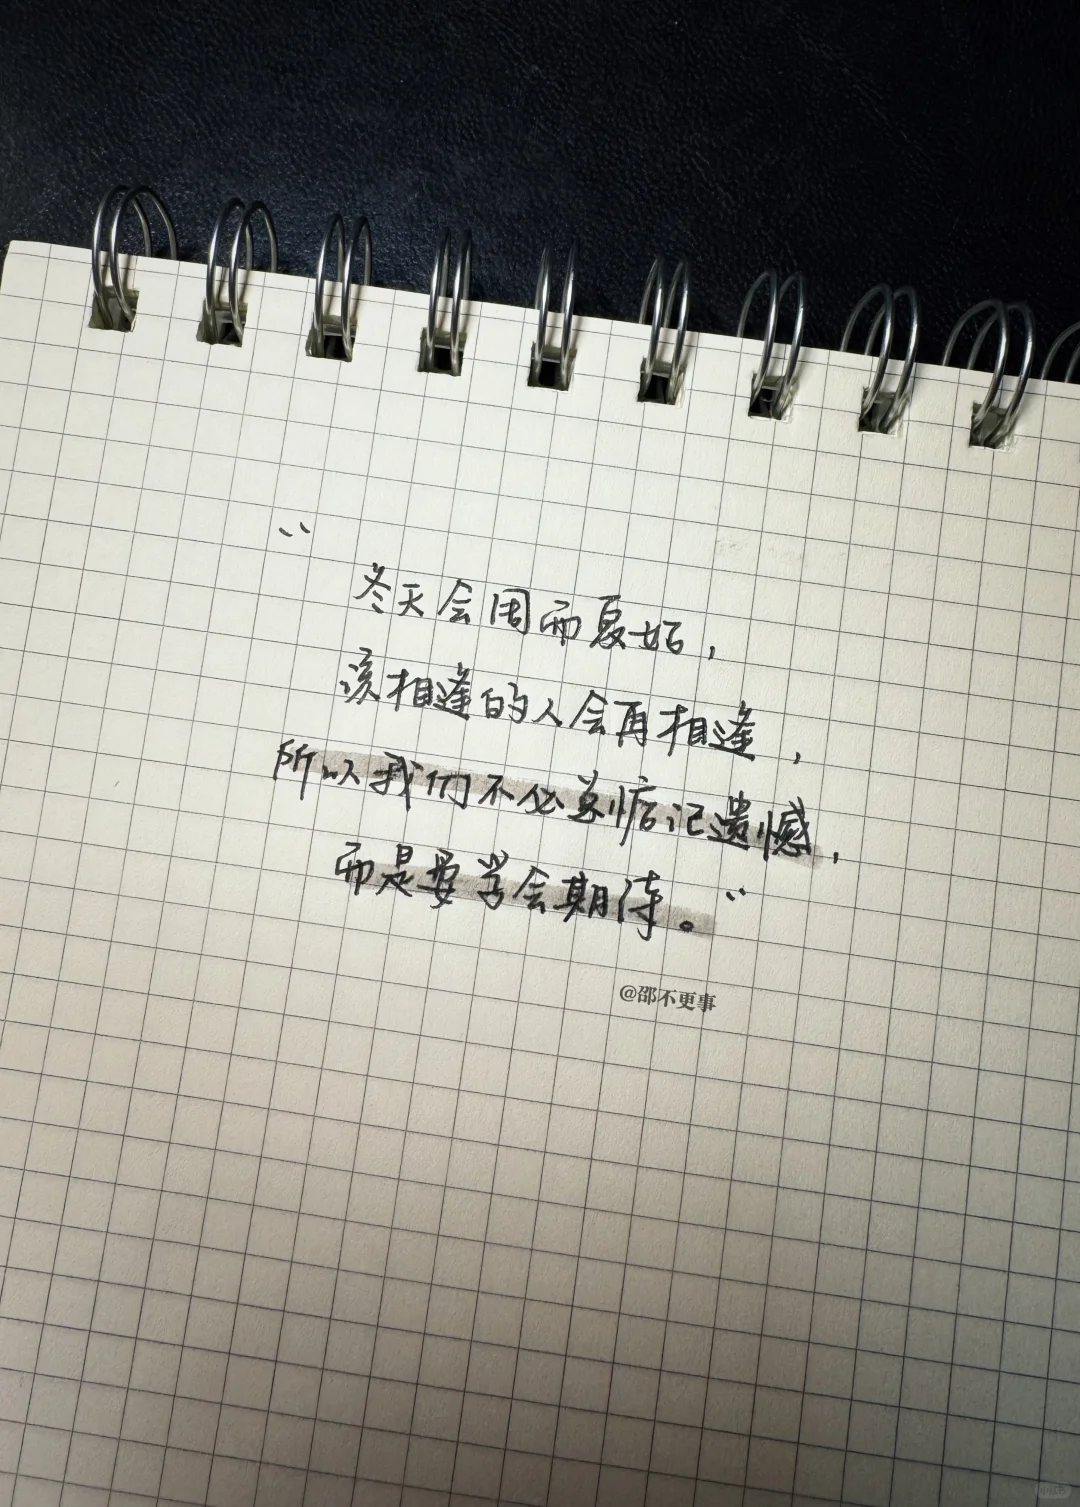 “
冬天会周而复始，
该相逢的人会再相逢，
所以我们不必总惦记遗憾，
而是要学会期待。”
@邵不更事
小红书